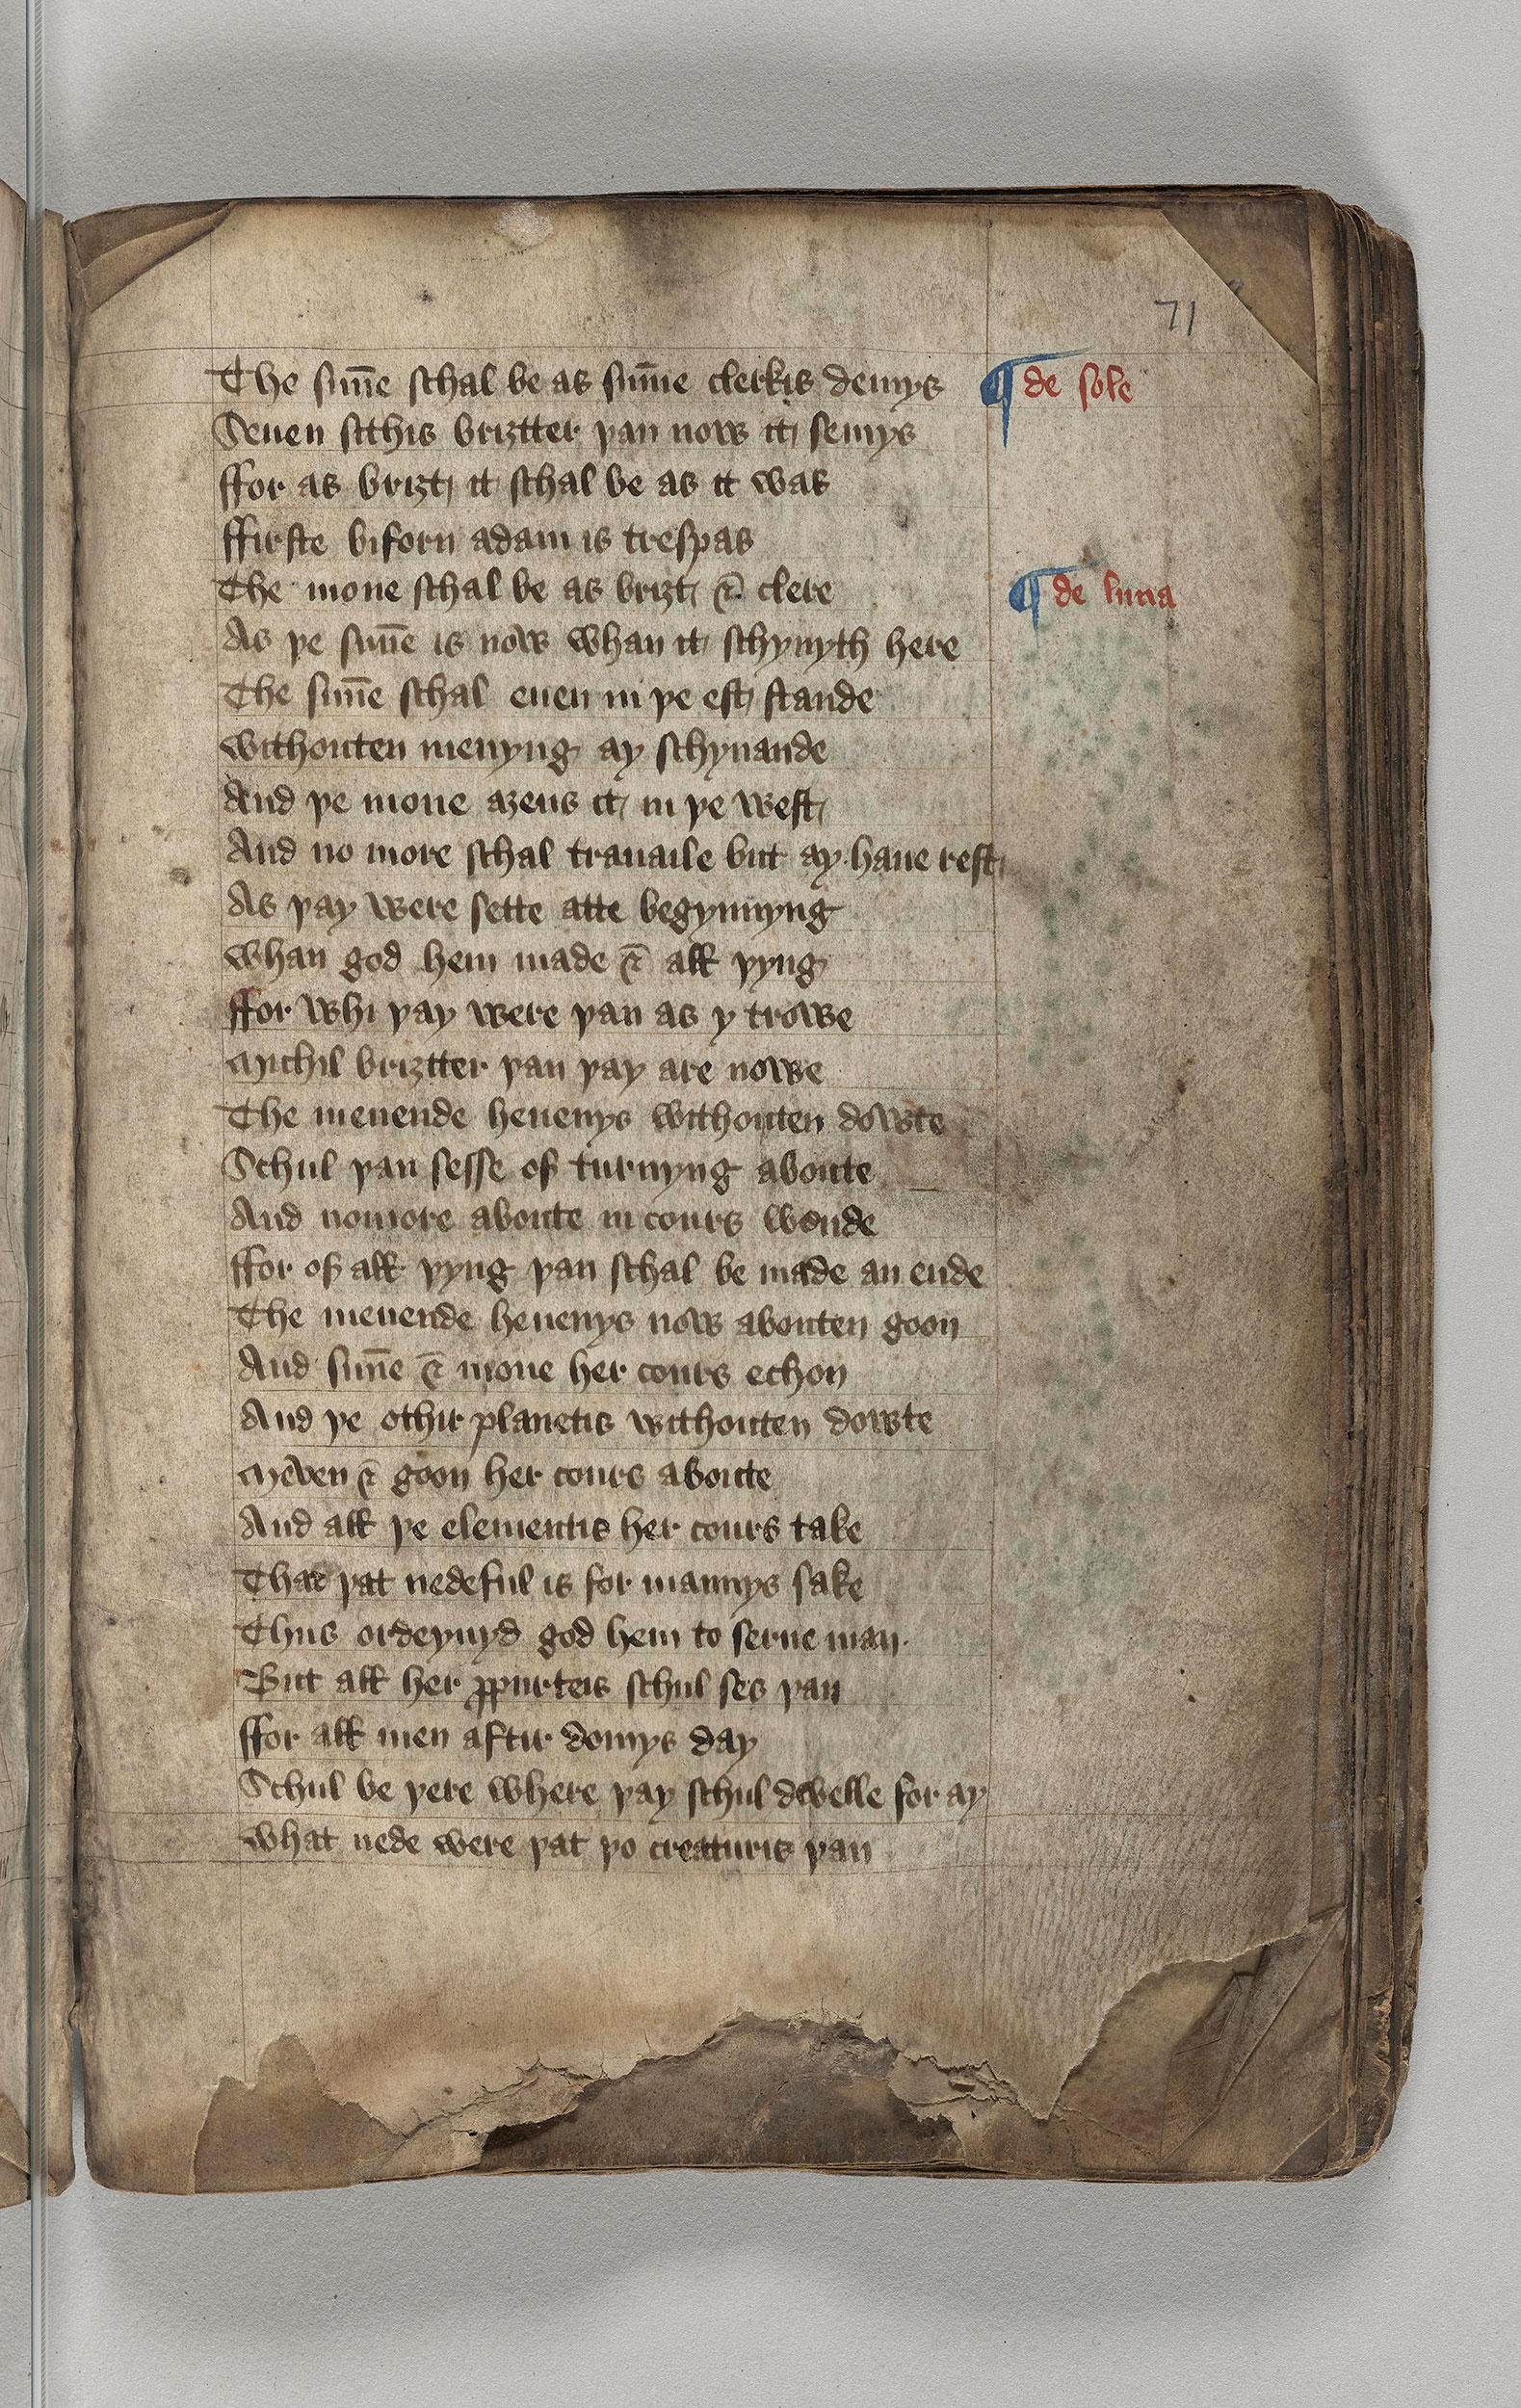 71
The sun̄e schal be as sum̄e clerkis demys ¶ de sole
Seuen sithis briȝtter þan now it semys
ffor as briȝt it schal be as it was
ffirste biforn adam is trespas
The mone schal be as briȝt ⁊ clere ¶ de luna
As þe sun̄e is now whan it schynyth here
The sun̄e schal euen in þe est stande
withouten meuyng ay schynande
And þe mone aȝens it in þe west
And no more schal trauaile but ay haue rest
As þay were sette atte begynnyng
whan god hem made ⁊ all þyng
ffor whi þay were þan as y trowe
Michil briȝtter þan þay are nowe
The meuende heuenys withouten dowte
Schul þan sesse of turnyng aboute
And nomore aboute in cours wende
ffor of all þyng þan schal be made an ende
The meuende heuenys now abouten goon
And sun̄e ⁊ mone her cours echon
And þe othir planetis withouten dowte
Meven ⁊ goon her cours aboute
And all þe elementis her cours take
That þat nedeful is for mannys sake
Thus ordeynyd god hem to serue man
But all her ꝓpurteis schul ses þan
ffor all men aftir domys day
Schul be þere where þay schul dwelle for ay
what nede were þat þo creaturis þan